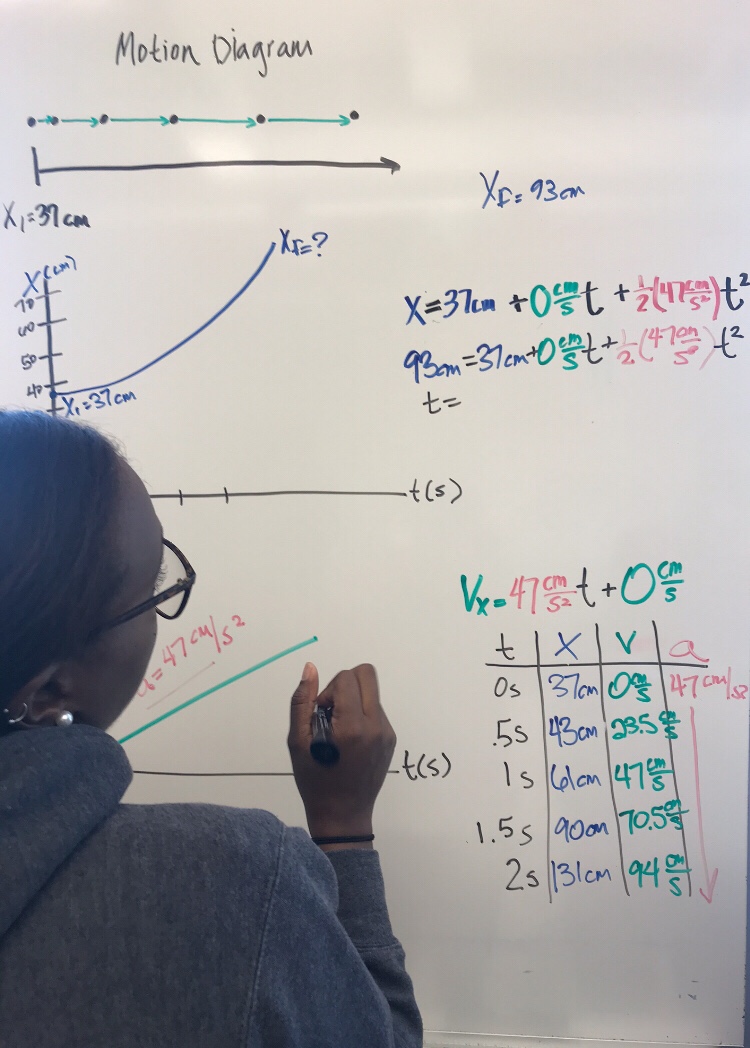 Motion Diagram
X₁=37cm
X_F=93cm
X(cm)
70
60
50
40
X_F=?
X₁=37cm
t(s)
X=37cm+0cm/s t+1/2(47cm/s²)t²
93cm=37cm+0cm/s t+1/2(47cm/s²)t²
t=
a=47cm/s²
t(s)
Vx=47cm/s² t+0cm/s
t X V a
0s 37cm 0cm/s 47cm/s²
.5s 43cm 23.5cm/s
1s 61cm 47cm/s
1.5s 90cm 70.5cm/s
2s 131cm 94cm/s